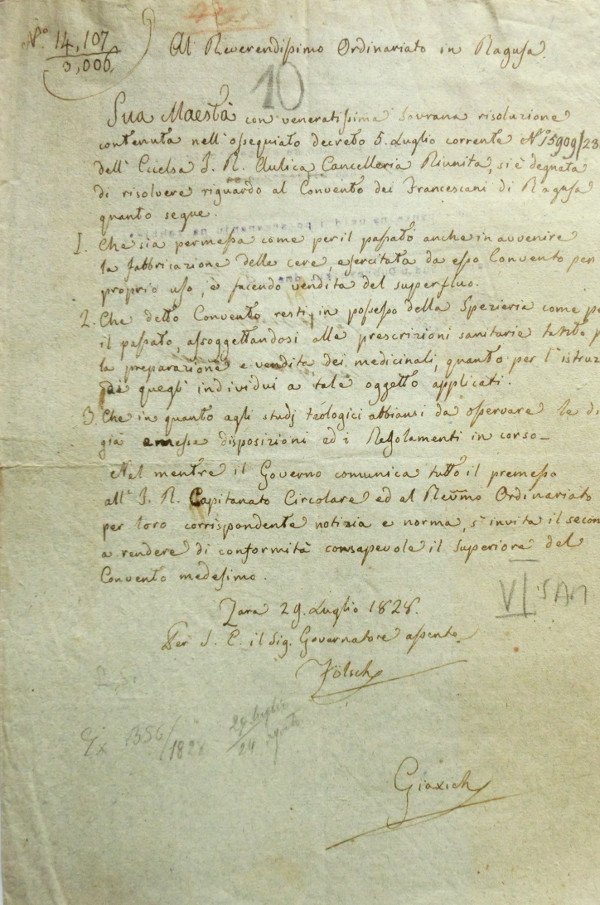 N.º 14,107
3,006
Al Reverendissimo Ordinariato in Ragusa.
10
Sua Maestà con veneratissima Sovrana risoluzione
contenuta nell' ossequiato decreto 5. Luglio corrente N.º 15909/23
dell' Eccelsa I. R. Aulica Cancelleria Riunita, si è degnata
di risolvere riguardo al Convento dei Francescani di Ragusa
quanto segue.
1. Che sia permessa come per il passato anche in avvenire
la fabbricazione delle cere, esercitata da esso Convento per
proprio uso, o facendo vendita del superfluo.
2. Che detto Convento resti in possesso della Spezieria come pe
il passato, assoggettandosi alle prescrizioni sanitarie tanto p
la preparazione e vendita dei medicinali, quanto per l' istruz
di quegli individui a tale oggetto applicati.
3. Che in quanto agli studj teologici abbiansi da osservare le di
già emesse disposizioni ed i Regolamenti in corso.
Nel mentre il Governo comunica tutto il premesso
all' I. R. Capitanato Circolare ed al Reṽmo Ordinariato
per loro corrispondente notizia e norma, s' invita il secon
a rendere di conformità consapevole il Superiore del
Convento medesimo.
Zara 29. Luglio 1828.
Per S. E. il Sig. Governatore assente
Fölsch
VI SAM
Ex 1356/1828 29 luglio
24 agosto
Giaxich